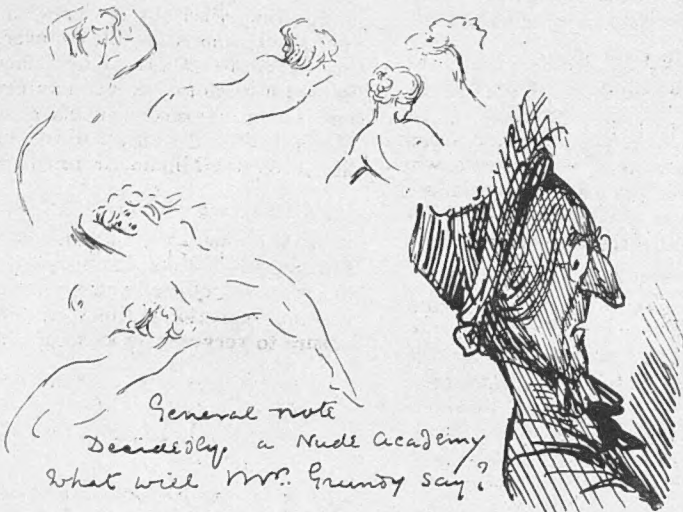 General note
Decidedly a Nude Academy
What will Mrs. Grundy say?